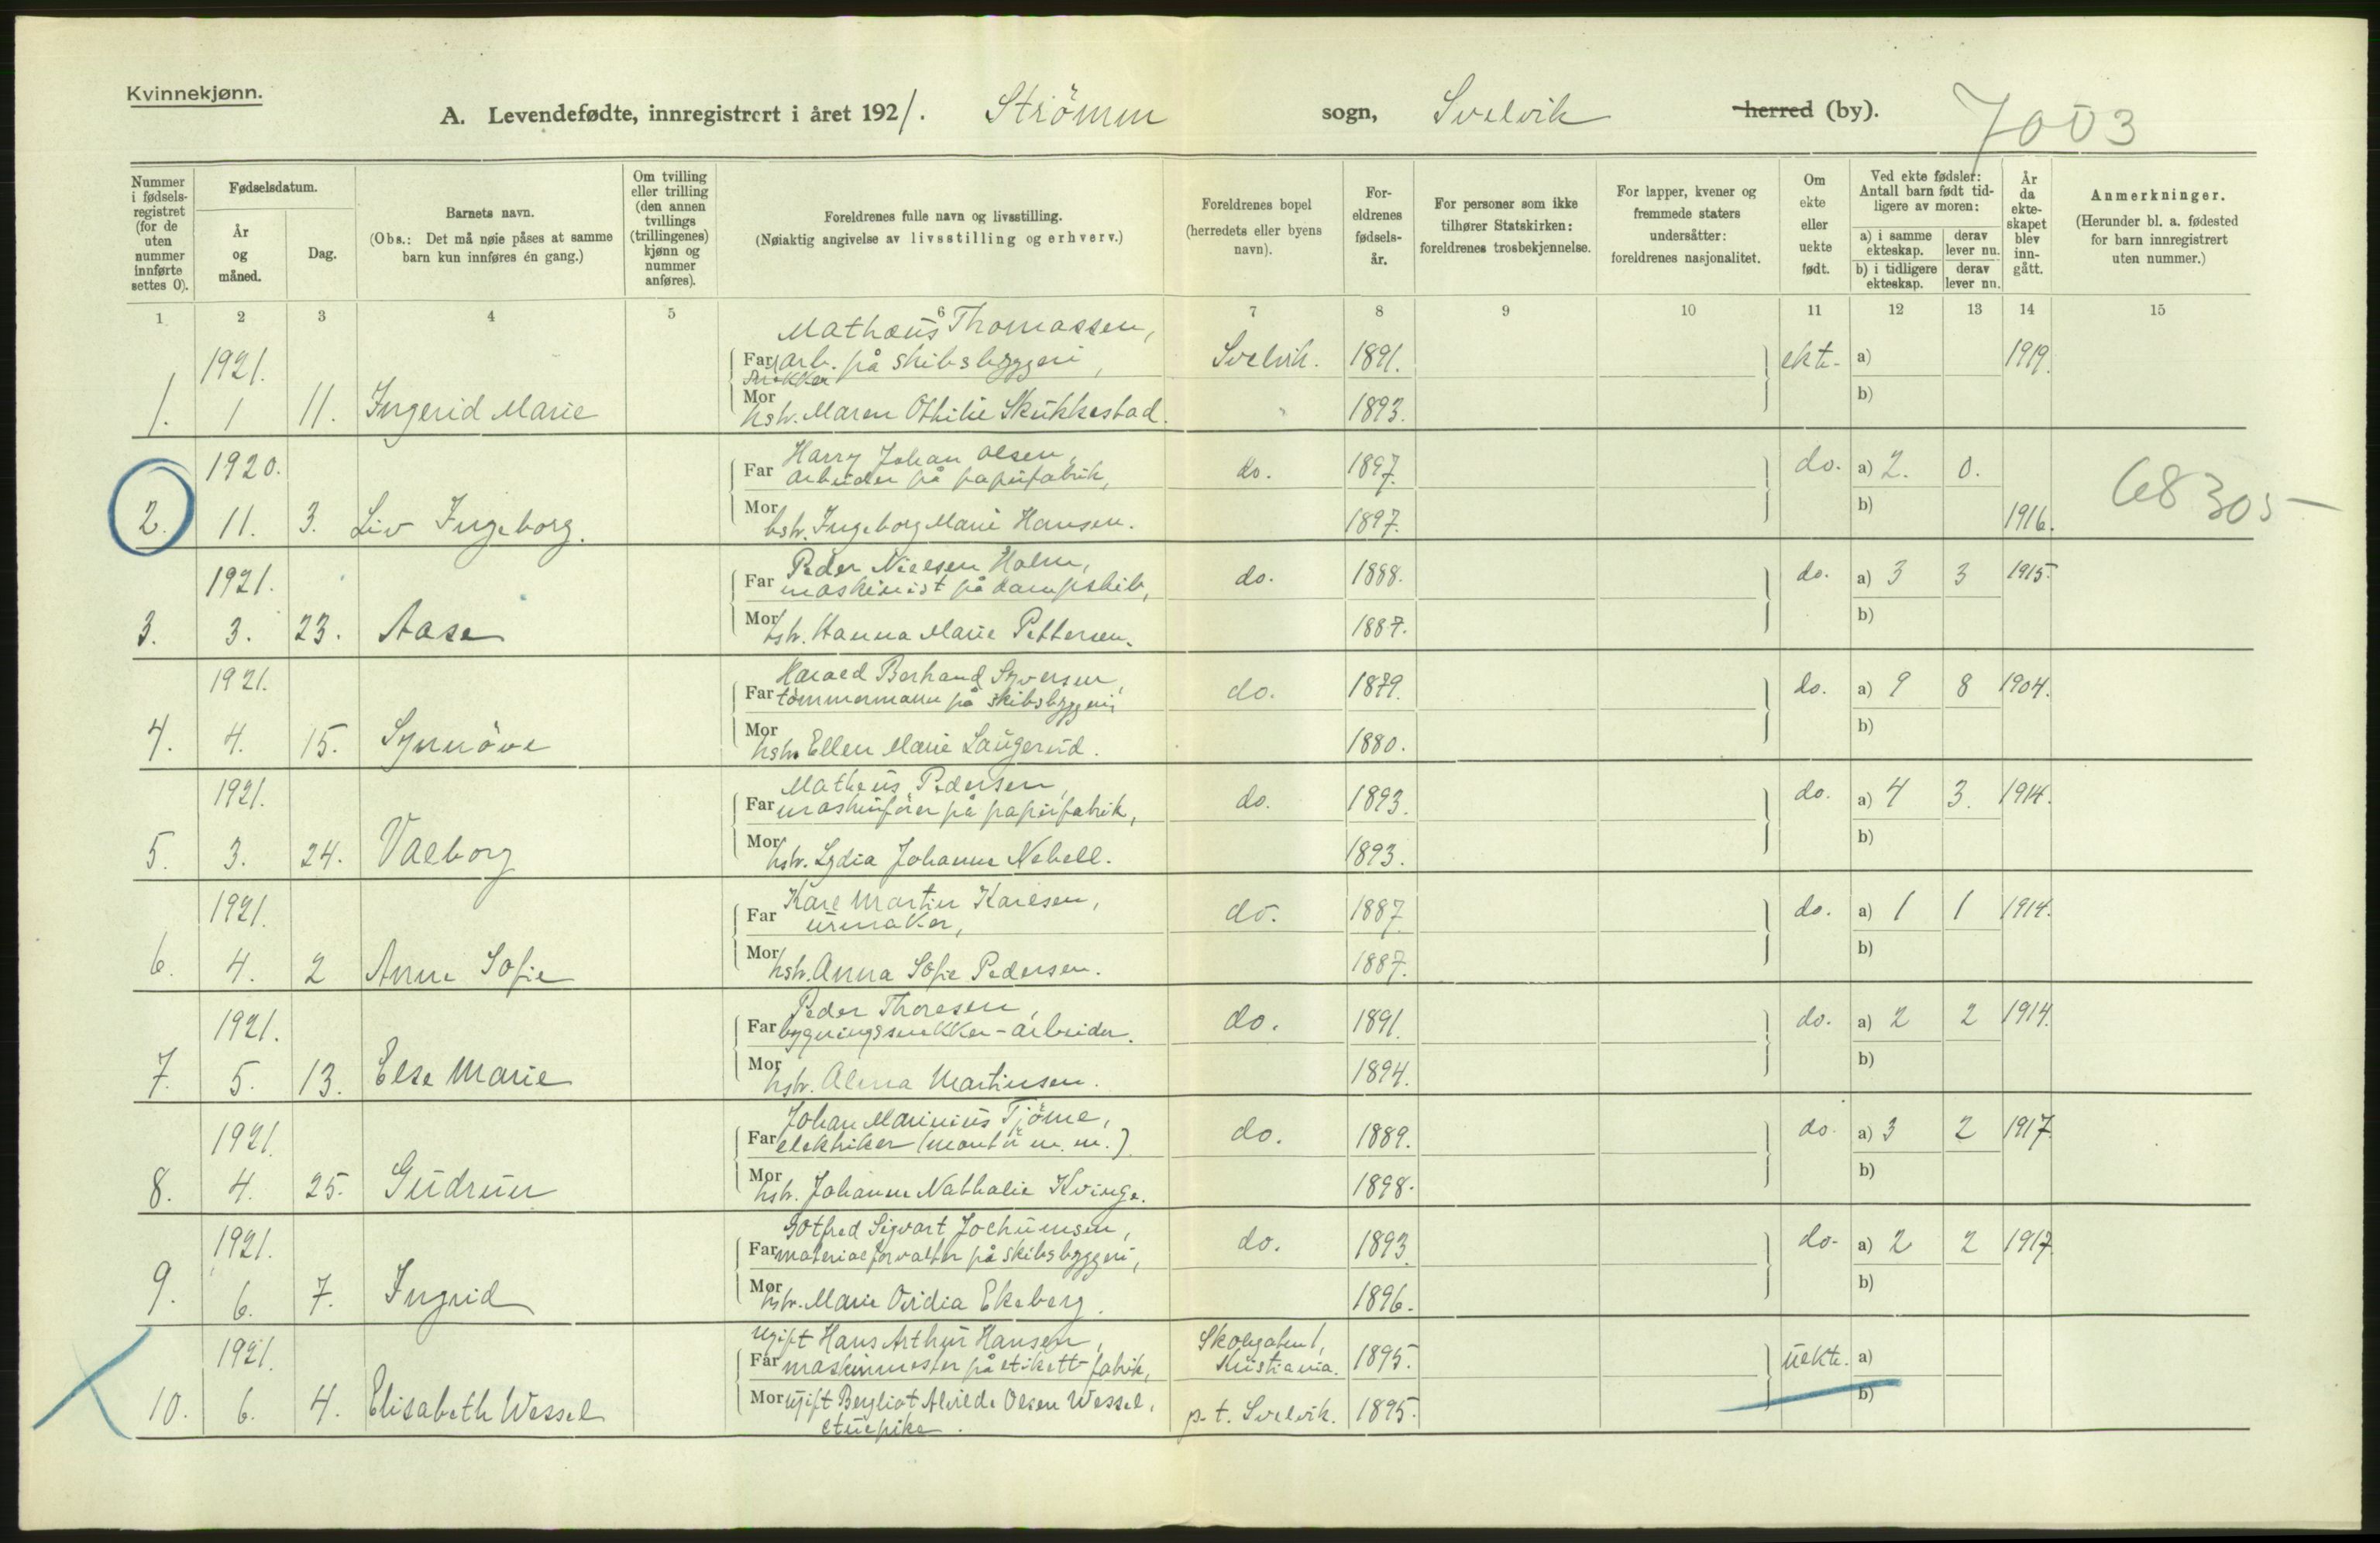 Kvinnekjønn.
A. Levendefødte, innregistrert i året 1921. Strömm sogn, Svelvik herred (by). 7003
Nummer i fødselsregistret (for de uten nummer innførte settes 0).
Fødselsdatum.
År og måned.
Dag.
Barnets navn.
(Obs.: Det må nøie påses at samme barn kun innføres én gang.)
Om tvilling eller trilling (den annen tvillings (trillingenes) kjønn og nummer anføres).
Foreldrenes fulle navn og livsstilling.
(Nøiaktig angivelse av livsstilling og erhverv.)
Foreldrenes bopel (herredets eller byens navn).
Foreldrenes fødselsår.
For personer som ikke tilhører Statskirken: foreldrenes trosbekjennelse.
For lapper, kvener og fremmede staters undersåtter: foreldrenes nasjonalitet.
Om ekte eller uekte født.
Ved ekte fødsler: Antall barn født tidligere av moren:
a) i samme ekteskap. derav lever nu.
b) i tidligere ekteskap. derav lever nu.
År da ekteskapet blev inngått.
Anmerkninger.
(Herunder bl. a. fødested for barn innregistrert uten nummer.)
1 2 3 4 5 6 7 8 9 10 11 12 13 14 15
Mathæus Thomassen,
1921. Far arb. på skibsbyggeri, Svelvik. 1891. ekte. a) 1919.
snekker
1. 1 11. Ingerid Marie Mor hstr. Maren Othilie Skukkestad. 1893. b)
Harry Johan Olsen,
1920. Far arbeider på papirfabrik, do. 1897. do. a) 2. 0.
2. 11. 3. Liv Ingeborg. Mor hstr. Ingeborg Marie Hansen. 1897. b) 1916. 68305
Peder Nielsen Holm,
1921. Far maskinist på dampskib, do. 1888. do. a) 3 3 1915.
3. 3. 23. Aase Mor hstr. Hanna Marie Pettersen. 1887. b)
Harald Berhand Syversen,
1921. Far tömmermann på skibsbyggeri, do. 1879. do. a) 9 8 1904.
4. 4. 15. Synnöve Mor hstr. Ellen Marie Laugerud. 1880. b)
Matheus Pedersen,
1921. Far maskinförer på papirfabrik, do. 1893. do. a) 4 3. 1914.
5. 3. 24. Valborg Mor hstr. Lydia Johanne Nebell. 1893. b)
Karl Martin Karlsen,
1921. Far urmaker, do. 1887. do. a) 1 1 1914.
6. 4. 2 Anne Sofie Mor hstr. Anna Sofie Pedersen. 1887. b)
Peder Thoresen,
1921. Far bygningssnekker-arbeider. do. 1891. do. a) 2 2 1914.
7. 5. 13. Else Marie Mor hstr. Alma Martinsen. 1894. b)
Johan Marinius Tjöme,
1921. Far elektriker (montör m. m.) do. 1889. do. a) 3 2 1917.
8. 4. 25. Gudrun Mor hstr. Johanne Nathalie Kvinge. 1898. b)
Gotfred Sigvart Jochumsen,
1921. Far materialforvalter på skibsbyggeri, do. 1893. do. a) 2 2 1917.
9. 6. 7. Ingrid Mor hstr. Marie Ovidia Ekeberg. 1896. b)
ugift Hans Arthur Hansen, Skougaten 1,
1921. Far maskinmester på etikett-fabrik, Kristiania. 1895. uekte. a)
10. 6. 4. Elisabeth Wessel Mor ugift Bergliot Alvilde Olsen Wessel, p.t. Svelvik. 1895. b)
etuepike.